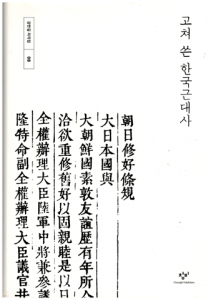 고쳐 쓴 한국근대사
朝日修好條規
大日本國與
大朝鮮國素敦友誼歷有年所
洽欲重修舊好以固親睦是以日
全權辦理大臣陸軍中將兼參議
隆特命副全權辦理大臣議官井